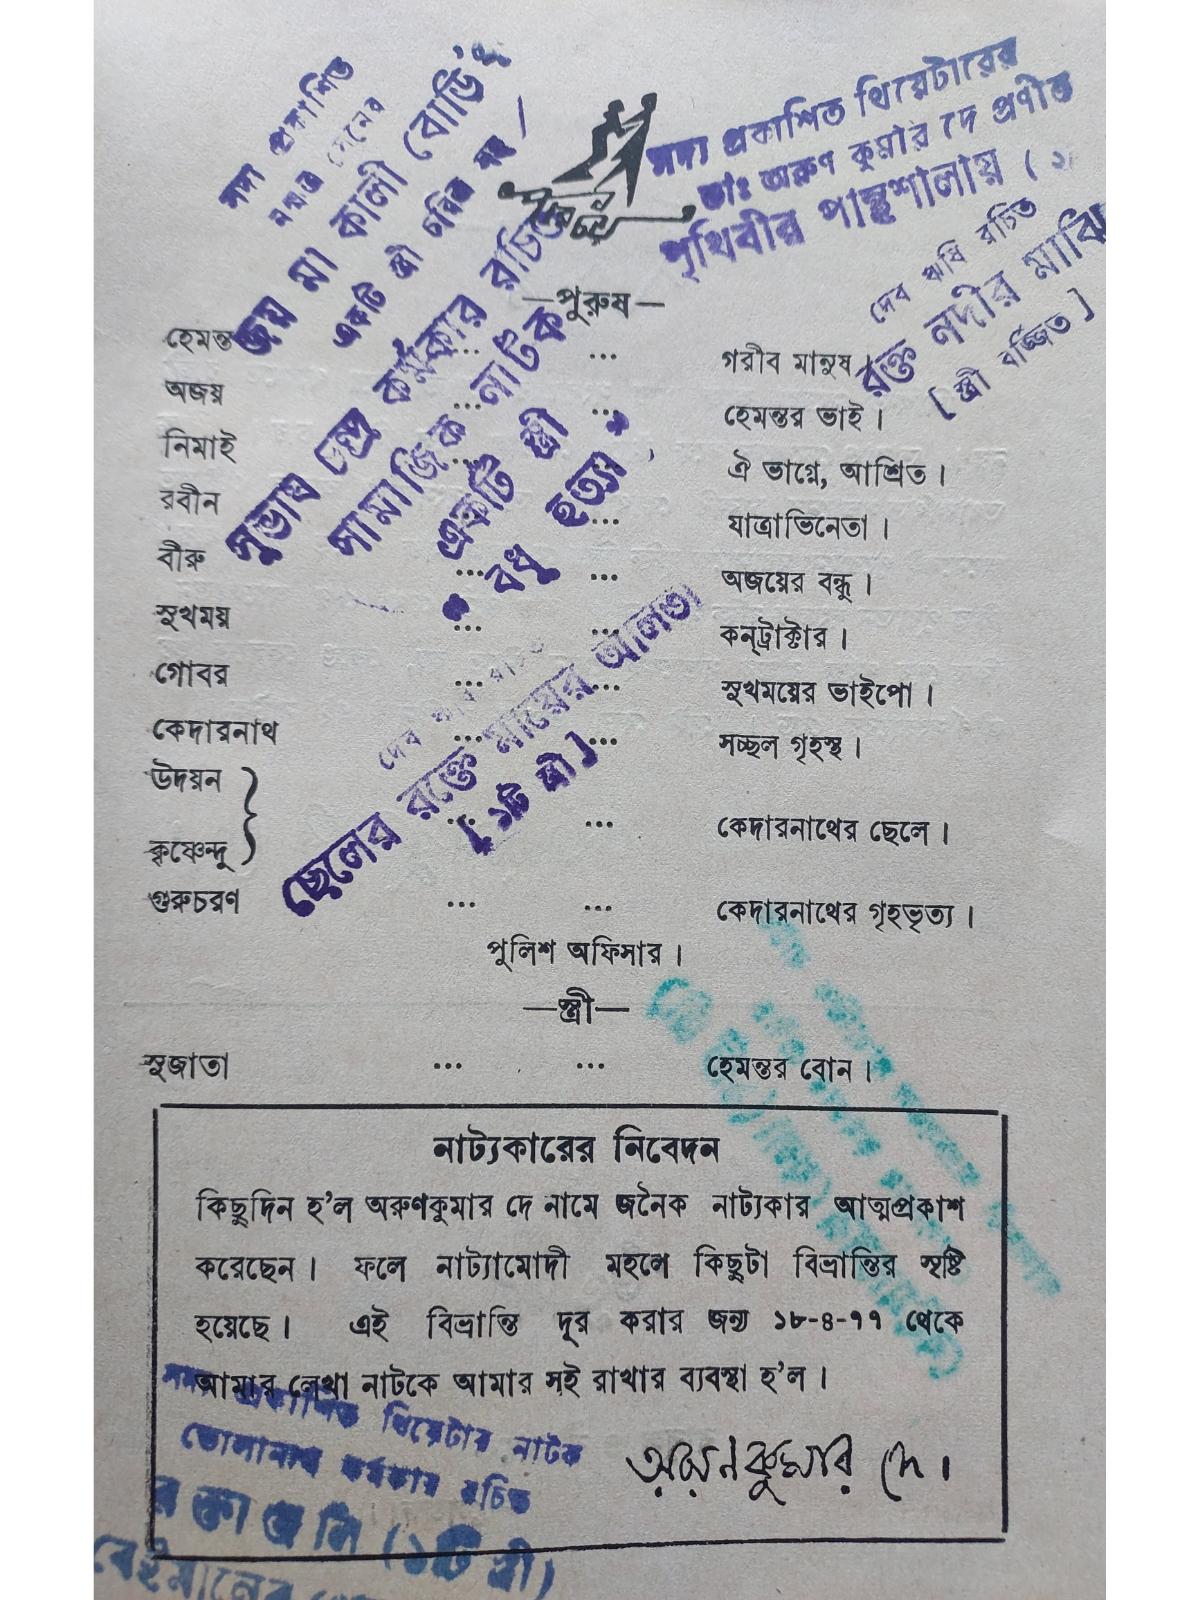 সদ্য প্রকাশিত
জয় মা কালী বোর্ডিং
একটি স্ত্রী চরিত্র সহ
সদ্য প্রকাশিত থিয়েটারের
ডাঃ অরুণ কুমার দে প্রণীত
পৃথিবীর পান্থশালায় ( ২
দেব ঋষি রচিত
রক্ত নদীর মাঝি
[ স্ত্রী বর্জ্জিত ]
সুভাষ চন্দ্র কর্মকার রচিত
সামাজিক নাটক
একটি স্ত্রী
" বধু হত্যা "
—পুরুষ—
হেমন্ত ... ... গরীব মানুষ
অজয় ... ... হেমন্তর ভাই।
নিমাই ... ঐ ভাগ্নে, আশ্রিত।
রবীন ... যাত্রাভিনেতা।
বীরু ... ... অজয়ের বন্ধু।
সুখময় ... ... কন্‌ট্রাক্টার।
গোবর ... ... সুখময়ের ভাইপো।
কেদারনাথ ... ... সচ্ছল গৃহস্থ।
উদয়ন
কৃষ্ণেন্দু } ... ... কেদারনাথের ছেলে।
গুরুচরণ ... ... কেদারনাথের গৃহভৃত্য।
পুলিশ অফিসার।
দেব ঋষি রচিত
ছেলের রক্তে মায়ের আলতা
[ ১টি স্ত্রী ]
—স্ত্রী—
সুজাতা ... ... হেমন্তর বোন।
নাট্যকারের নিবেদন
কিছুদিন হ'ল অরুণকুমার দে নামে জনৈক নাট্যকার আত্মপ্রকাশ
করেছেন। ফলে নাট্যামোদী মহলে কিছুটা বিভ্রান্তির সৃষ্টি
হয়েছে। এই বিভ্রান্তি দূর করার জন্য ১৮-৪-৭৭ থেকে
আমার লেখা নাটকে আমার সই রাখার ব্যবস্থা হ'ল।
অরুণকুমার দে।
সদ্য প্রকাশিত থিয়েটার নাটক
ভোলানাথ কর্মকার রচিত
রক্তাঞ্জলি (১টি স্ত্রী)
বেইমানের